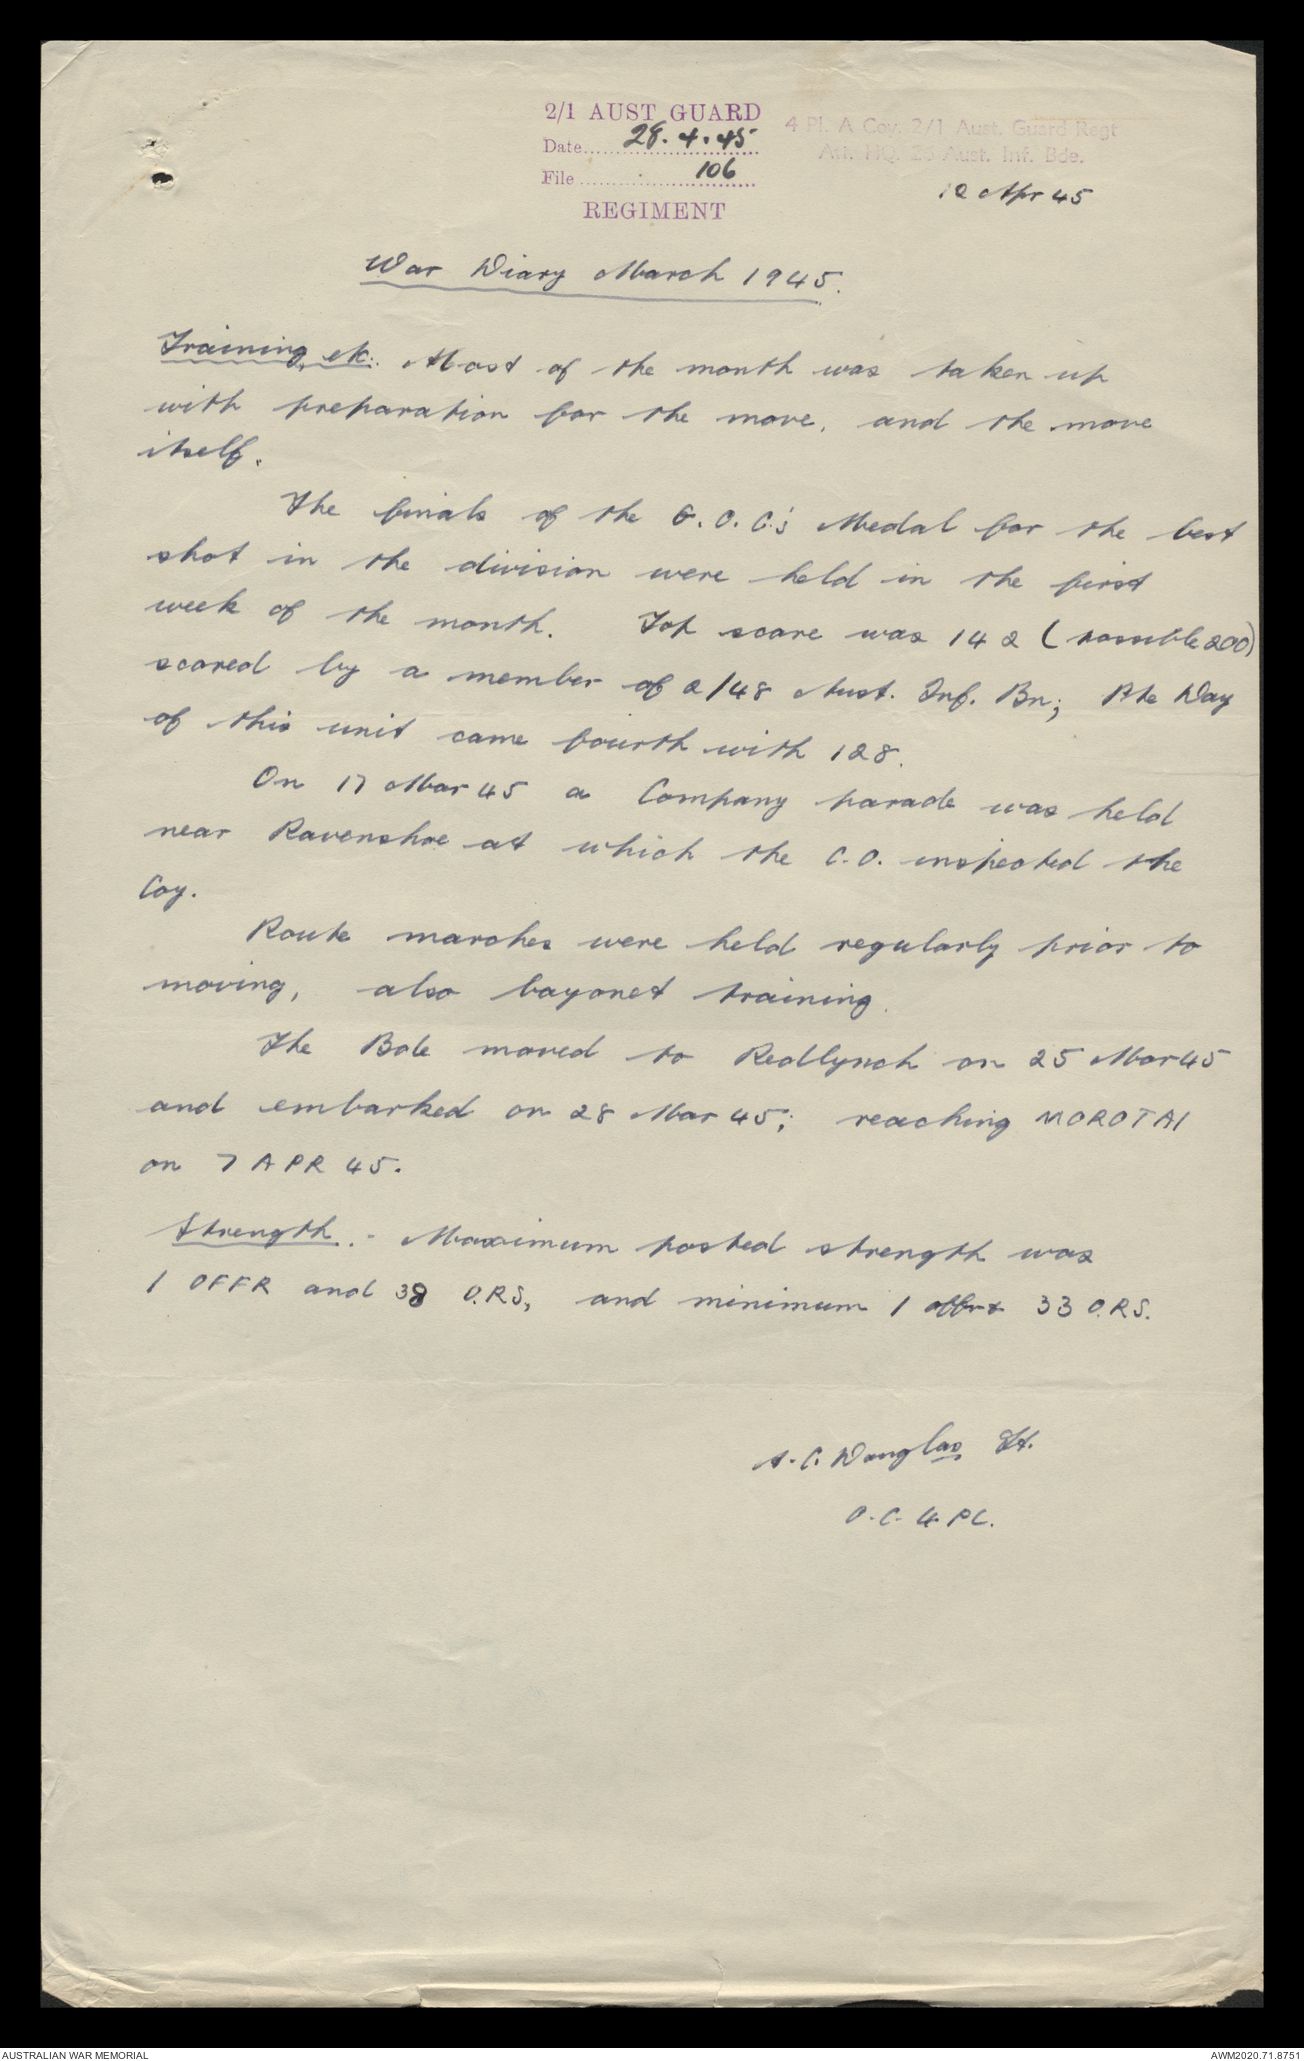 2/1 AUST GUARD
Date 28.4.45
File 106
REGIMENT
4 Pl. A Coy. 2/1 Aust. Guard Regt
Att. HQ. 26 Aust. Inf. Bde.
12 Apr 45
War Diary March 1945.
Training, etc:. Most of the month was taken up
with preparation for the move, and the move
itself.
The finals of the G.O.C.'s Medal for the best
shot in the division were held in the first
week of the month. Top score was 142 (possible 200)
scored by a member of 2/48 Aust. Inf. Bn; Pte Day
of this unit came fourth with 128.
On 17 Mar 45 a Company parade was held
near Ravenshoe at which the C.O. inspected the
Coy.
Route marches were held regularly prior to
moving, also bayonet training.
The Bde moved to Redlynch on 25 Mar 45
and embarked on 28 Mar 45; reaching MOROTAI
on 7 APR 45.
Strength.- Maximum posted strength was
1 OFFR and 38 O.RS, and minimum 1 offr & 33 O.RS.
A.C. Douglas Lt.
O.C. 4 PL.
AUSTRALIAN WAR MEMORIAL
AWM2020.71.8751